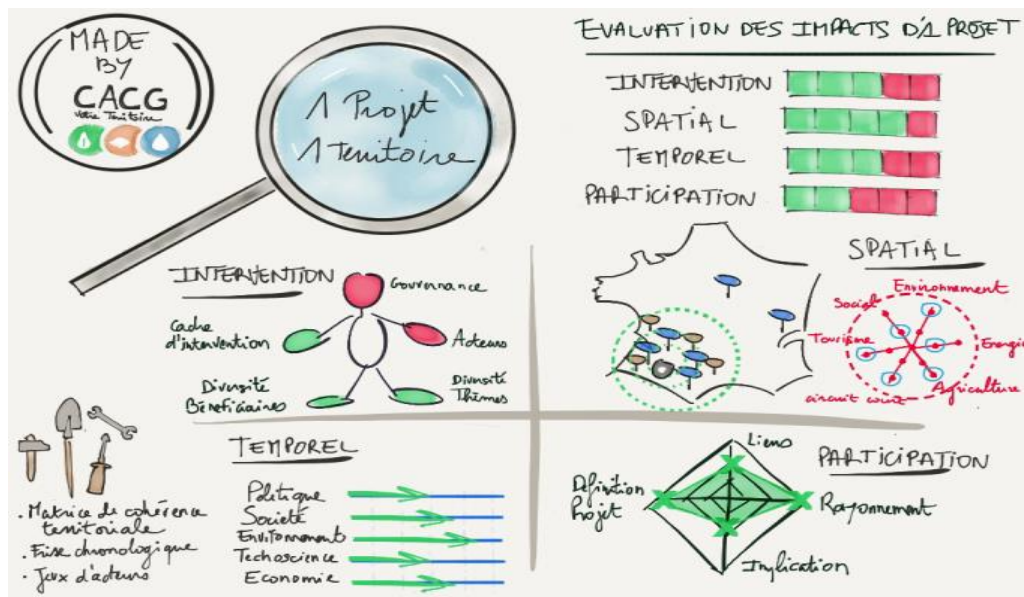 MADE
BY
CACG
Votre Territoire
1 Projet
1 Territoire
EVALUATION DES IMPACTS D'1 PROJET
INTERVENTION
SPATIAL
TEMPOREL
PARTICIPATION
INTERVENTION
Gouvernance
Cadre
d'intervention
Acteurs
Diversité
Bénéficiaires
Diversité
Thèmes
SPATIAL
Environnement
Social
Tourisme
Energie
Agriculture
circuit court
. Matrice de cohérence
territoriale
. Frise chronologique
. Jeux d'acteurs
TEMPOREL
Politique
Société
Environnement
Technoscience
Economie
PARTICIPATION
Liens
Définition
Projet
Rayonnement
Implication